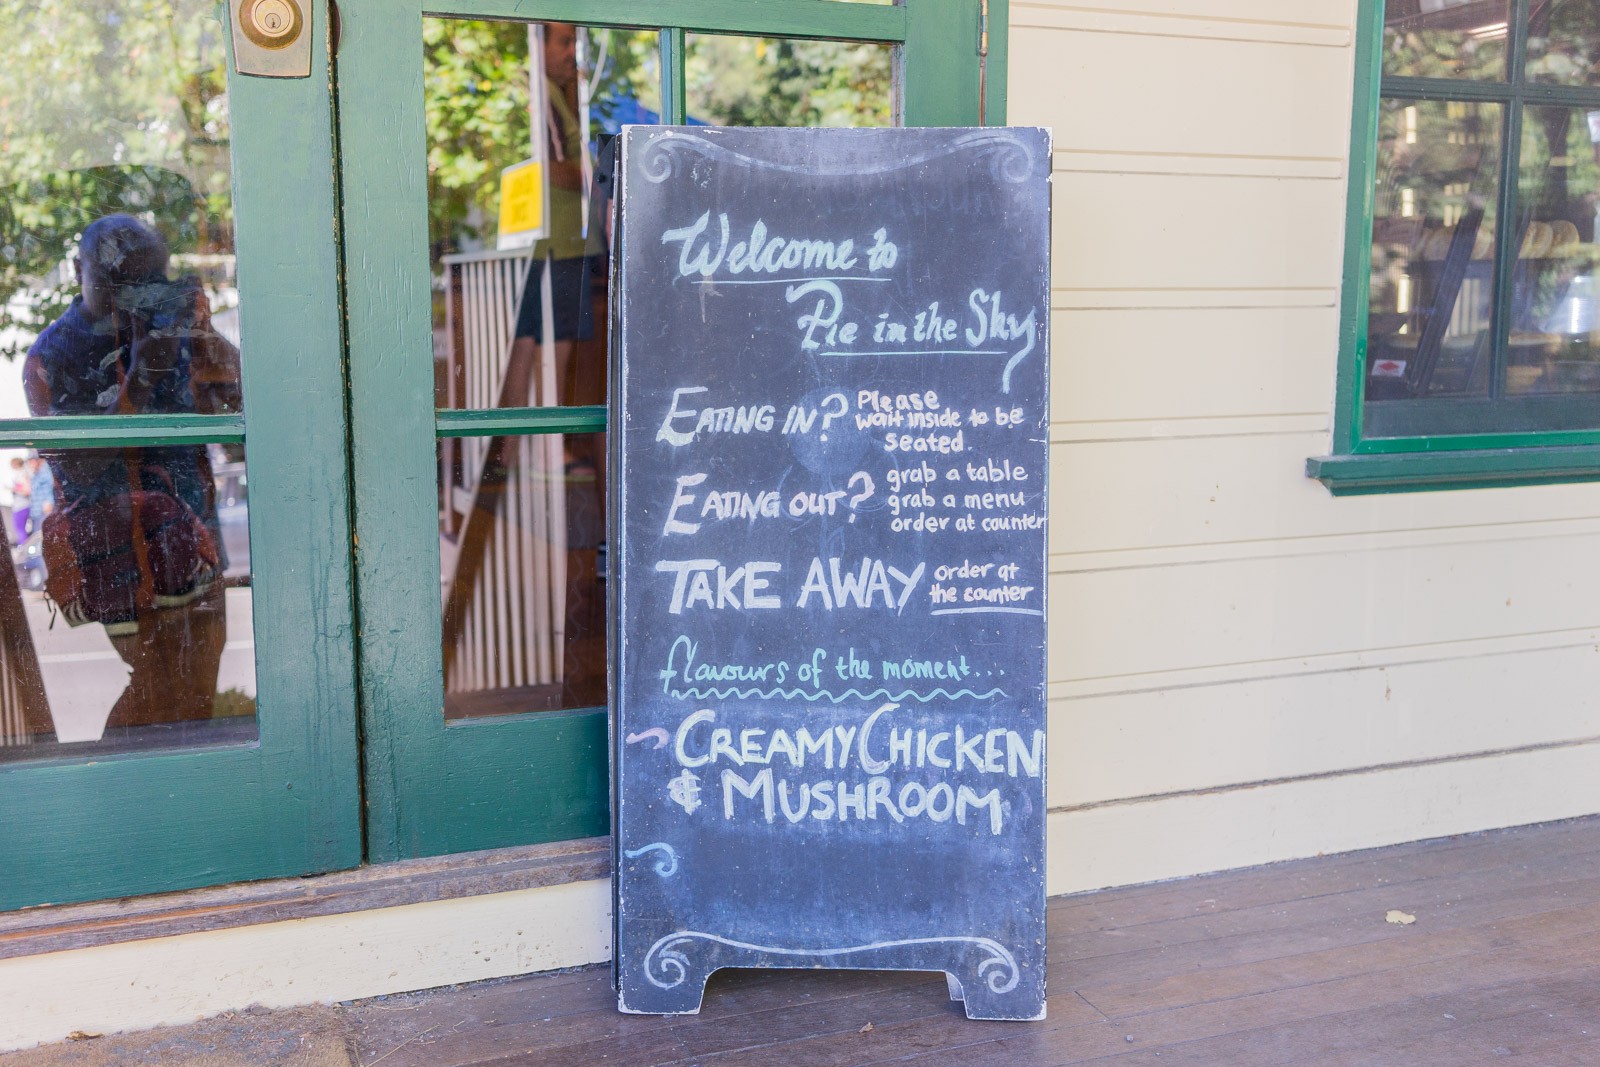 Welcome to
Pie in the Sky
EATING IN? Please
wait inside to be
seated.
EATING OUT? grab a table
grab a menu
order at counter
TAKE AWAY order at
the counter
flavours of the moment...
CREAMY CHICKEN
& MUSHROOM